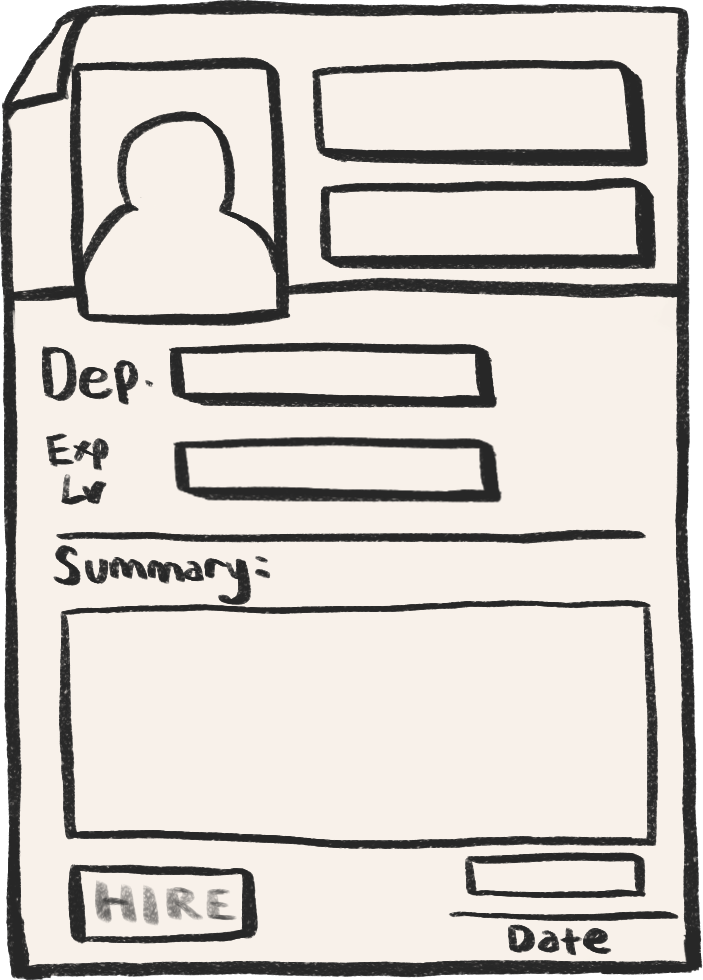 Dep.
Exp
Lv
Summary:
HIRE
Date